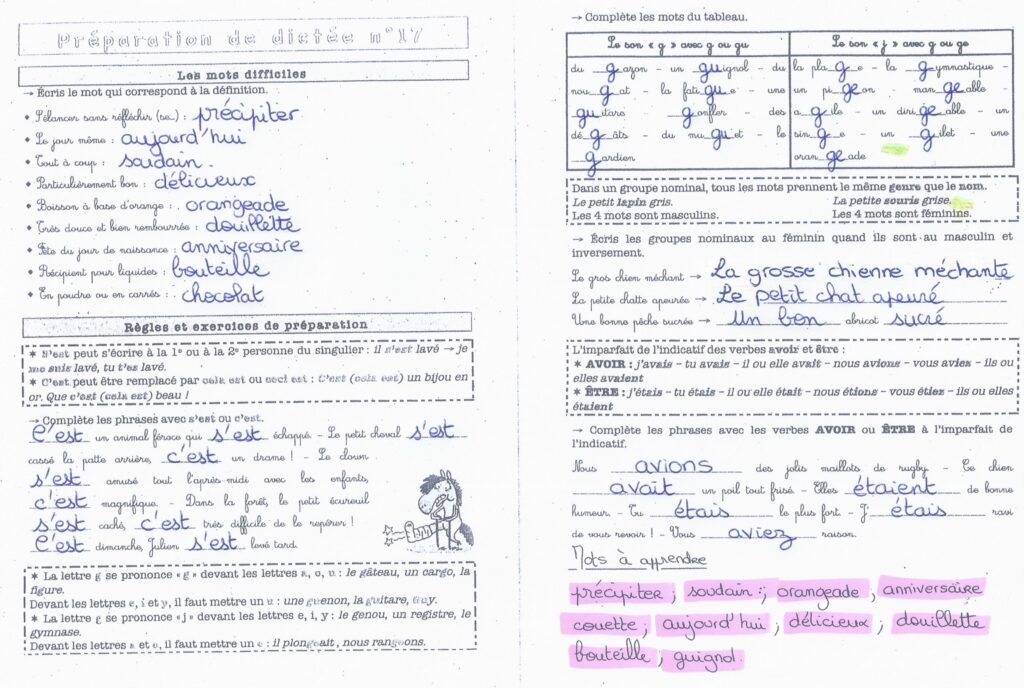 Préparation de dictée n°17
Les mots difficiles
→ Écris le mot qui correspond à la définition.
• S'élancer sans réfléchir (se...) : précipiter
• Le jour même : aujourd'hui
• Tout à coup : soudain.
• Particulièrement bon : délicieux
• Boisson à base d'orange : orangeade
• Très douce et bien rembourrée : douillette
• Fête du jour de naissance : anniversaire
• Récipient pour liquides : bouteille
• En poudre ou en carrés : chocolat
Règles et exercices de préparation
∗ S'est peut s'écrire à la 1e ou à la 2e personne du singulier : il s'est lavé → je
me suis lavé, tu t'es lavé.
∗ C'est peut être remplacé par cela est ou ceci est : C'est (cela est) un bijou en
or. Que c'est (cela est) beau !
→ Complète les phrases avec s'est ou c'est.
C'est un animal féroce qui s'est échappé. – Le petit cheval s'est
cassé la patte arrière, c'est un drame ! – Le clown
s'est amusé tout l'après-midi avec les enfants,
c'est magnifique. – Dans la forêt, le petit écureuil
s'est caché, c'est très difficile de le repérer !
C'est dimanche, Julien s'est levé tard.
∗ La lettre g se prononce « g » devant les lettres a, o, u : le gâteau, un cargo, la
figure.
Devant les lettres e, i et y, il faut mettre un u : une guenon, la guitare, Guy.
∗ La lettre g se prononce «j» devant les lettres e, i, y : le genou, un registre, le
gymnase.
Devant les lettres a et o, il faut mettre un e : il plongeait, nous rangeons.
→ Complète les mots du tableau.
Le son « g » avec g ou gu
du gazon – un guignol – du
nougat – la fatigue – une
guitare – gonfler – des
dégâts – du muguet – le
gardien
Le son « j » avec g ou ge
la plage – la gymnastique –
un pigeon – mangeable –
agile – un dirigeable – un
singe – un gilet – une
orangeade
Dans un groupe nominal, tous les mots prennent le même genre que le nom.
Le petit lapin gris. La petite souris grise.
Les 4 mots sont masculins. Les 4 mots sont féminins.
→ Écris les groupes nominaux au féminin quand ils sont au masculin et
inversement.
Le gros chien méchant → La grosse chienne méchante
La petite chatte apeurée → Le petit chat apeuré
Une bonne pêche sucrée → Un bon abricot sucré
L'imparfait de l'indicatif des verbes avoir et être :
∗ AVOIR : j'avais – tu avais – il ou elle avait – nous avions – vous aviez – ils ou
elles avaient
∗ ÊTRE : j'étais – tu étais – il ou elle était – nous étions – vous étiez – ils ou elles
étaient
→ Complète les phrases avec les verbes AVOIR ou ÊTRE à l'imparfait de
l'indicatif.
Nous avions des jolis maillots de rugby. – Ce chien
avait un poil tout frisé. – Elles étaient de bonne
humeur. – Tu étais le plus fort. – J' étais ravi
de vous revoir ! – Vous aviez raison.
Mots à apprendre
précipiter ; soudain ; orangeade ; anniversaire
couette ; aujourd'hui ; délicieux ; douillette
bouteille ; guignol.